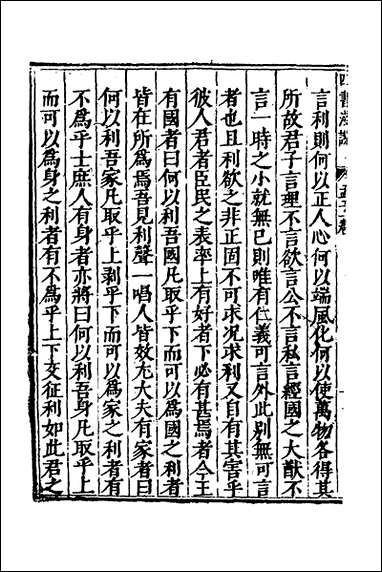 四書淺說
言利則何以正人心何以端風化何以使萬物各得其
所故君子言理不言欲言公不言私言經國之大猷不
言一時之小就無已則唯有仁義可言外此別無可言
者也且利欲之非正固不可求况求利又自有其害乎
彼人君者臣民之表率上有好者下必有甚焉者今王
有國者曰何以利吾國凡取乎下而可以爲國之利者
皆在所爲焉吾見利聲一唱人皆效尤大夫有家者曰
何以利吾家凡取乎上剥乎下而可以爲家之利者有
不爲乎士庶人有身者亦將曰何以利吾身凡取乎上
而可以爲身之利者有不爲乎上下交征利如此君之